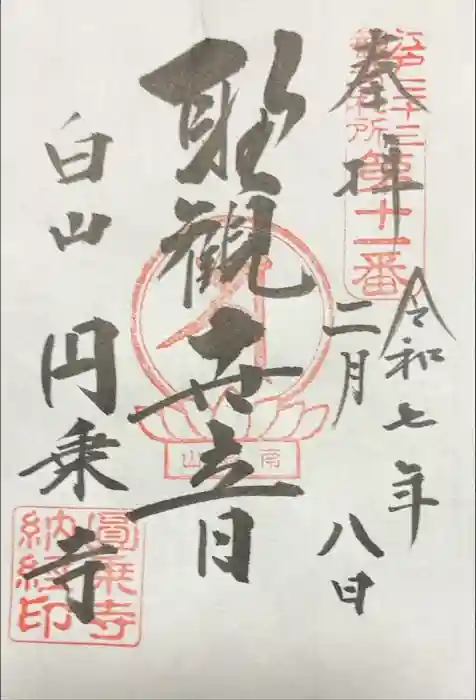 奉拝
江戸三十三
観音札所
第十一番
令和七年
二月八日
聖観世音
南 山
白山 円乗寺
圓乗寺
納経印